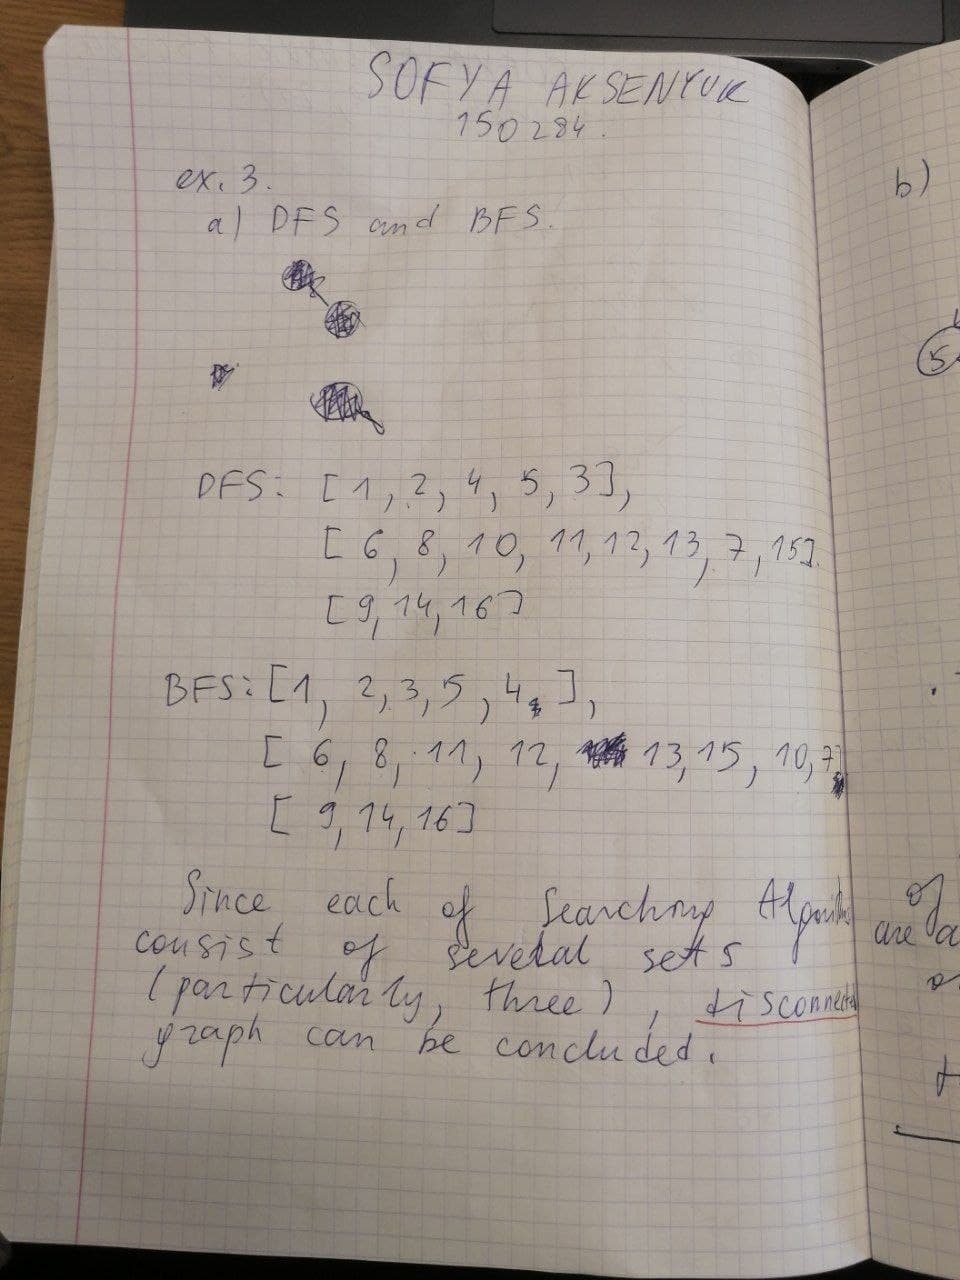 SOFYA AKSENYUK
150284.
ex. 3.
a) DFS and BFS.
DFS: [1, 2, 4, 5, 3],
[6, 8, 10, 11, 12, 13, 7, 15].
[9, 14, 16]
BFS: [1, 2, 3, 5, 4, ],
[6, 8, 11, 12, 13, 15, 10, 7]
[9, 14, 16]
Since each of Searching
consist of several sets
(particularly, three), disconnected
graph can be concluded.
b)
5
of
are a